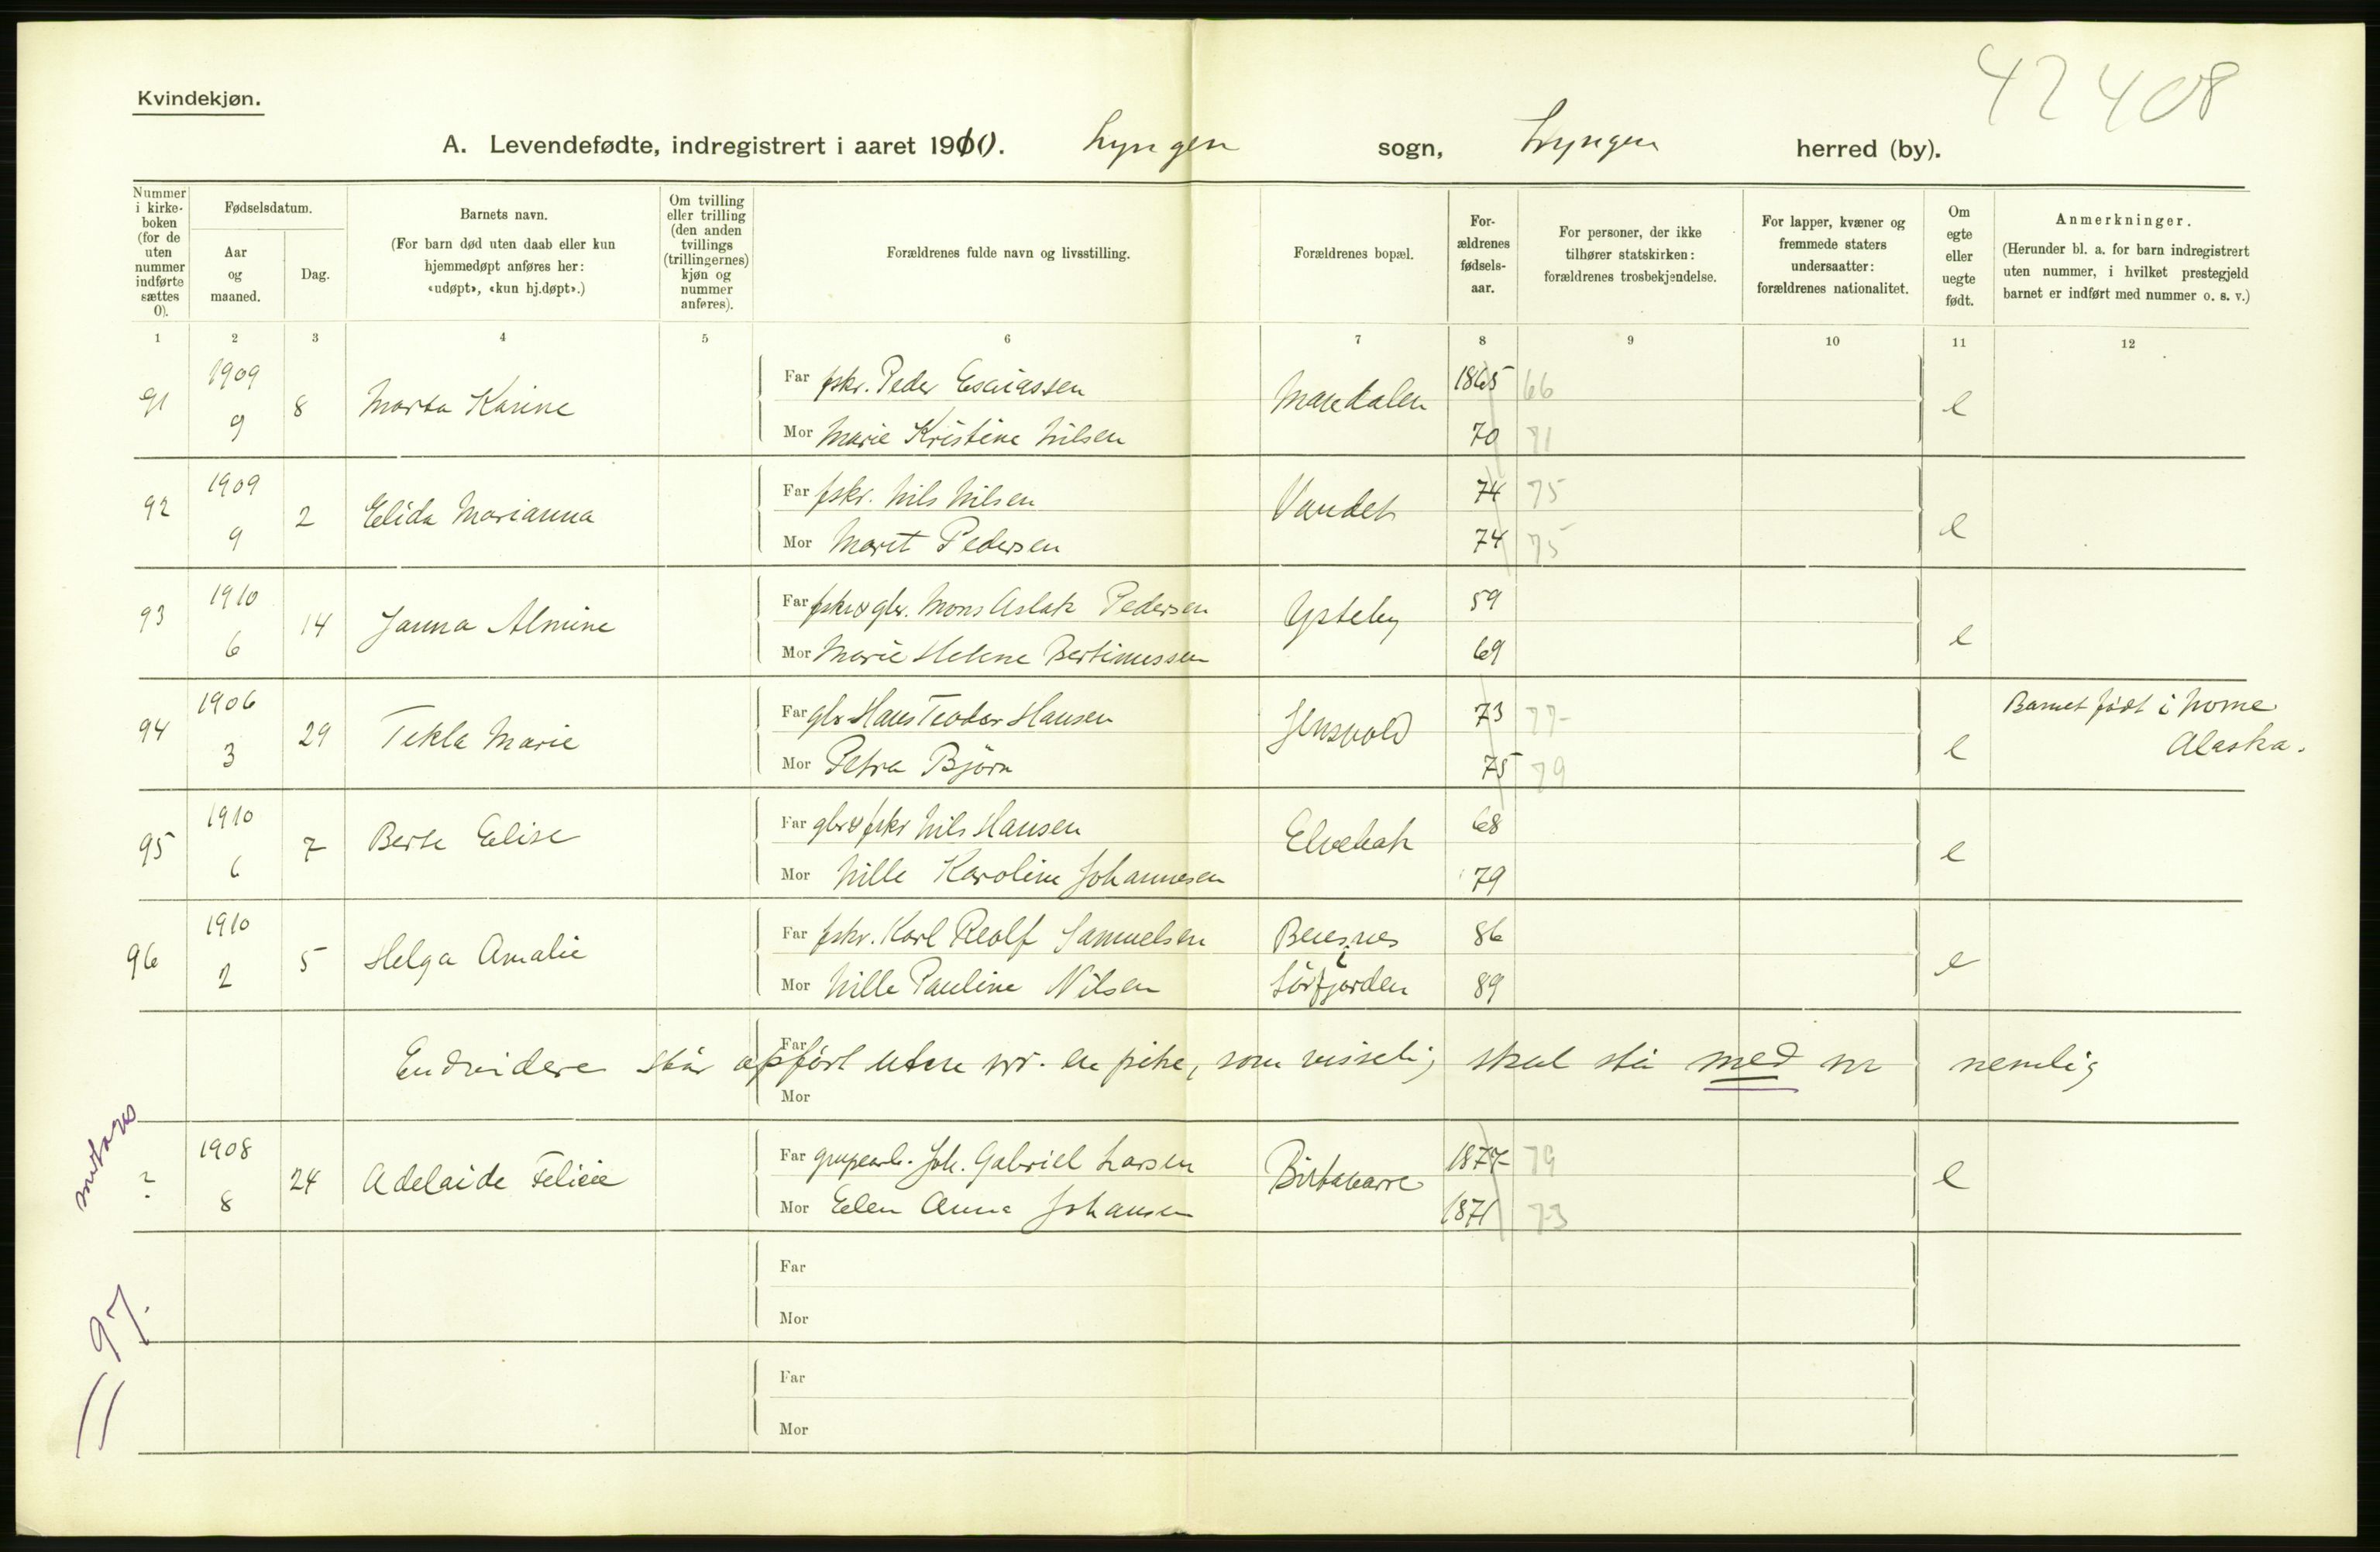 42408
Kvindekjøn.
A. Levendefødte, indregistrert i aaret 1910. Lyngen sogn, Lyngen herred (by).
Nummer i kirke-boken (for de uten nummer indførte sættes 0).
Fødselsdatum.
Aar og maaned.
Dag.
Barnets navn.
(For barn død uten daab eller kun hjemmedøpt anføres her: «udøpt», «kun hj.døpt».)
Om tvilling eller trilling (den anden tvillings (trillingernes) kjøn og nummer anføres).
Forældrenes fulde navn og livsstilling.
Forældrenes bopæl.
For-ældrenes fødsels-aar.
For personer, der ikke tilhører statskirken: forældrenes trosbekjendelse.
For lapper, kvæner og fremmede staters undersaatter: forældrenes nationalitet.
Om egte eller uegte født.
Anmerkninger.
(Herunder bl. a. for barn indregistrert uten nummer, i hvilket prestegjeld barnet er indført med nummer o. s. v.)
1 2 3 4 5 6 7 8 9 10 11 12
91 1909 9 8 Marta Karine Far fskr. Peder Esaiassen Mandalen 1865 66 e
Mor Marie Kristine Nilsen 70 71
92 1909 9 2 Elida Marianna Far fskr. Nils Nilsen Vandet 74 75 e
Mor Marit Pedersen 74 75
93 1910 6 14 Janna Almine Far fskr & gbr. Mons Aslak Pedersen Ysteby 59 e
Mor Marie Helene Bertinussen 69
94 1906 3 29 Tekla Marie Far gbr Hans Teodor Hansen Jensvold 73 77 e Barnet født i Nome
Mor Petra Bjørn 75 79 Alaska.
95 1910 6 7 Berte Elise Far gbr & fskr Nils Hansen Elvebak 68 e
Mor Nille Karoline Johannesen 79
96 1910 2 5 Helga Amalie Far fskr. Karl Reolf Samuelsen Beresnes 86 e
Mor Nille Pauline Nilsen i Sørfjorden 89
Far
Endvidere står opført uten nr. en pike, som visselig skal stå med nr nemlig
Mor
? 1908 8 24 Adelaide Felicie Far grupearb. Joh. Gabriel Larsen Birtavarre 1877 79 e
Mor Elen Anna Johansen 1871 73
Far
Mor
Far
Mor
= 97.